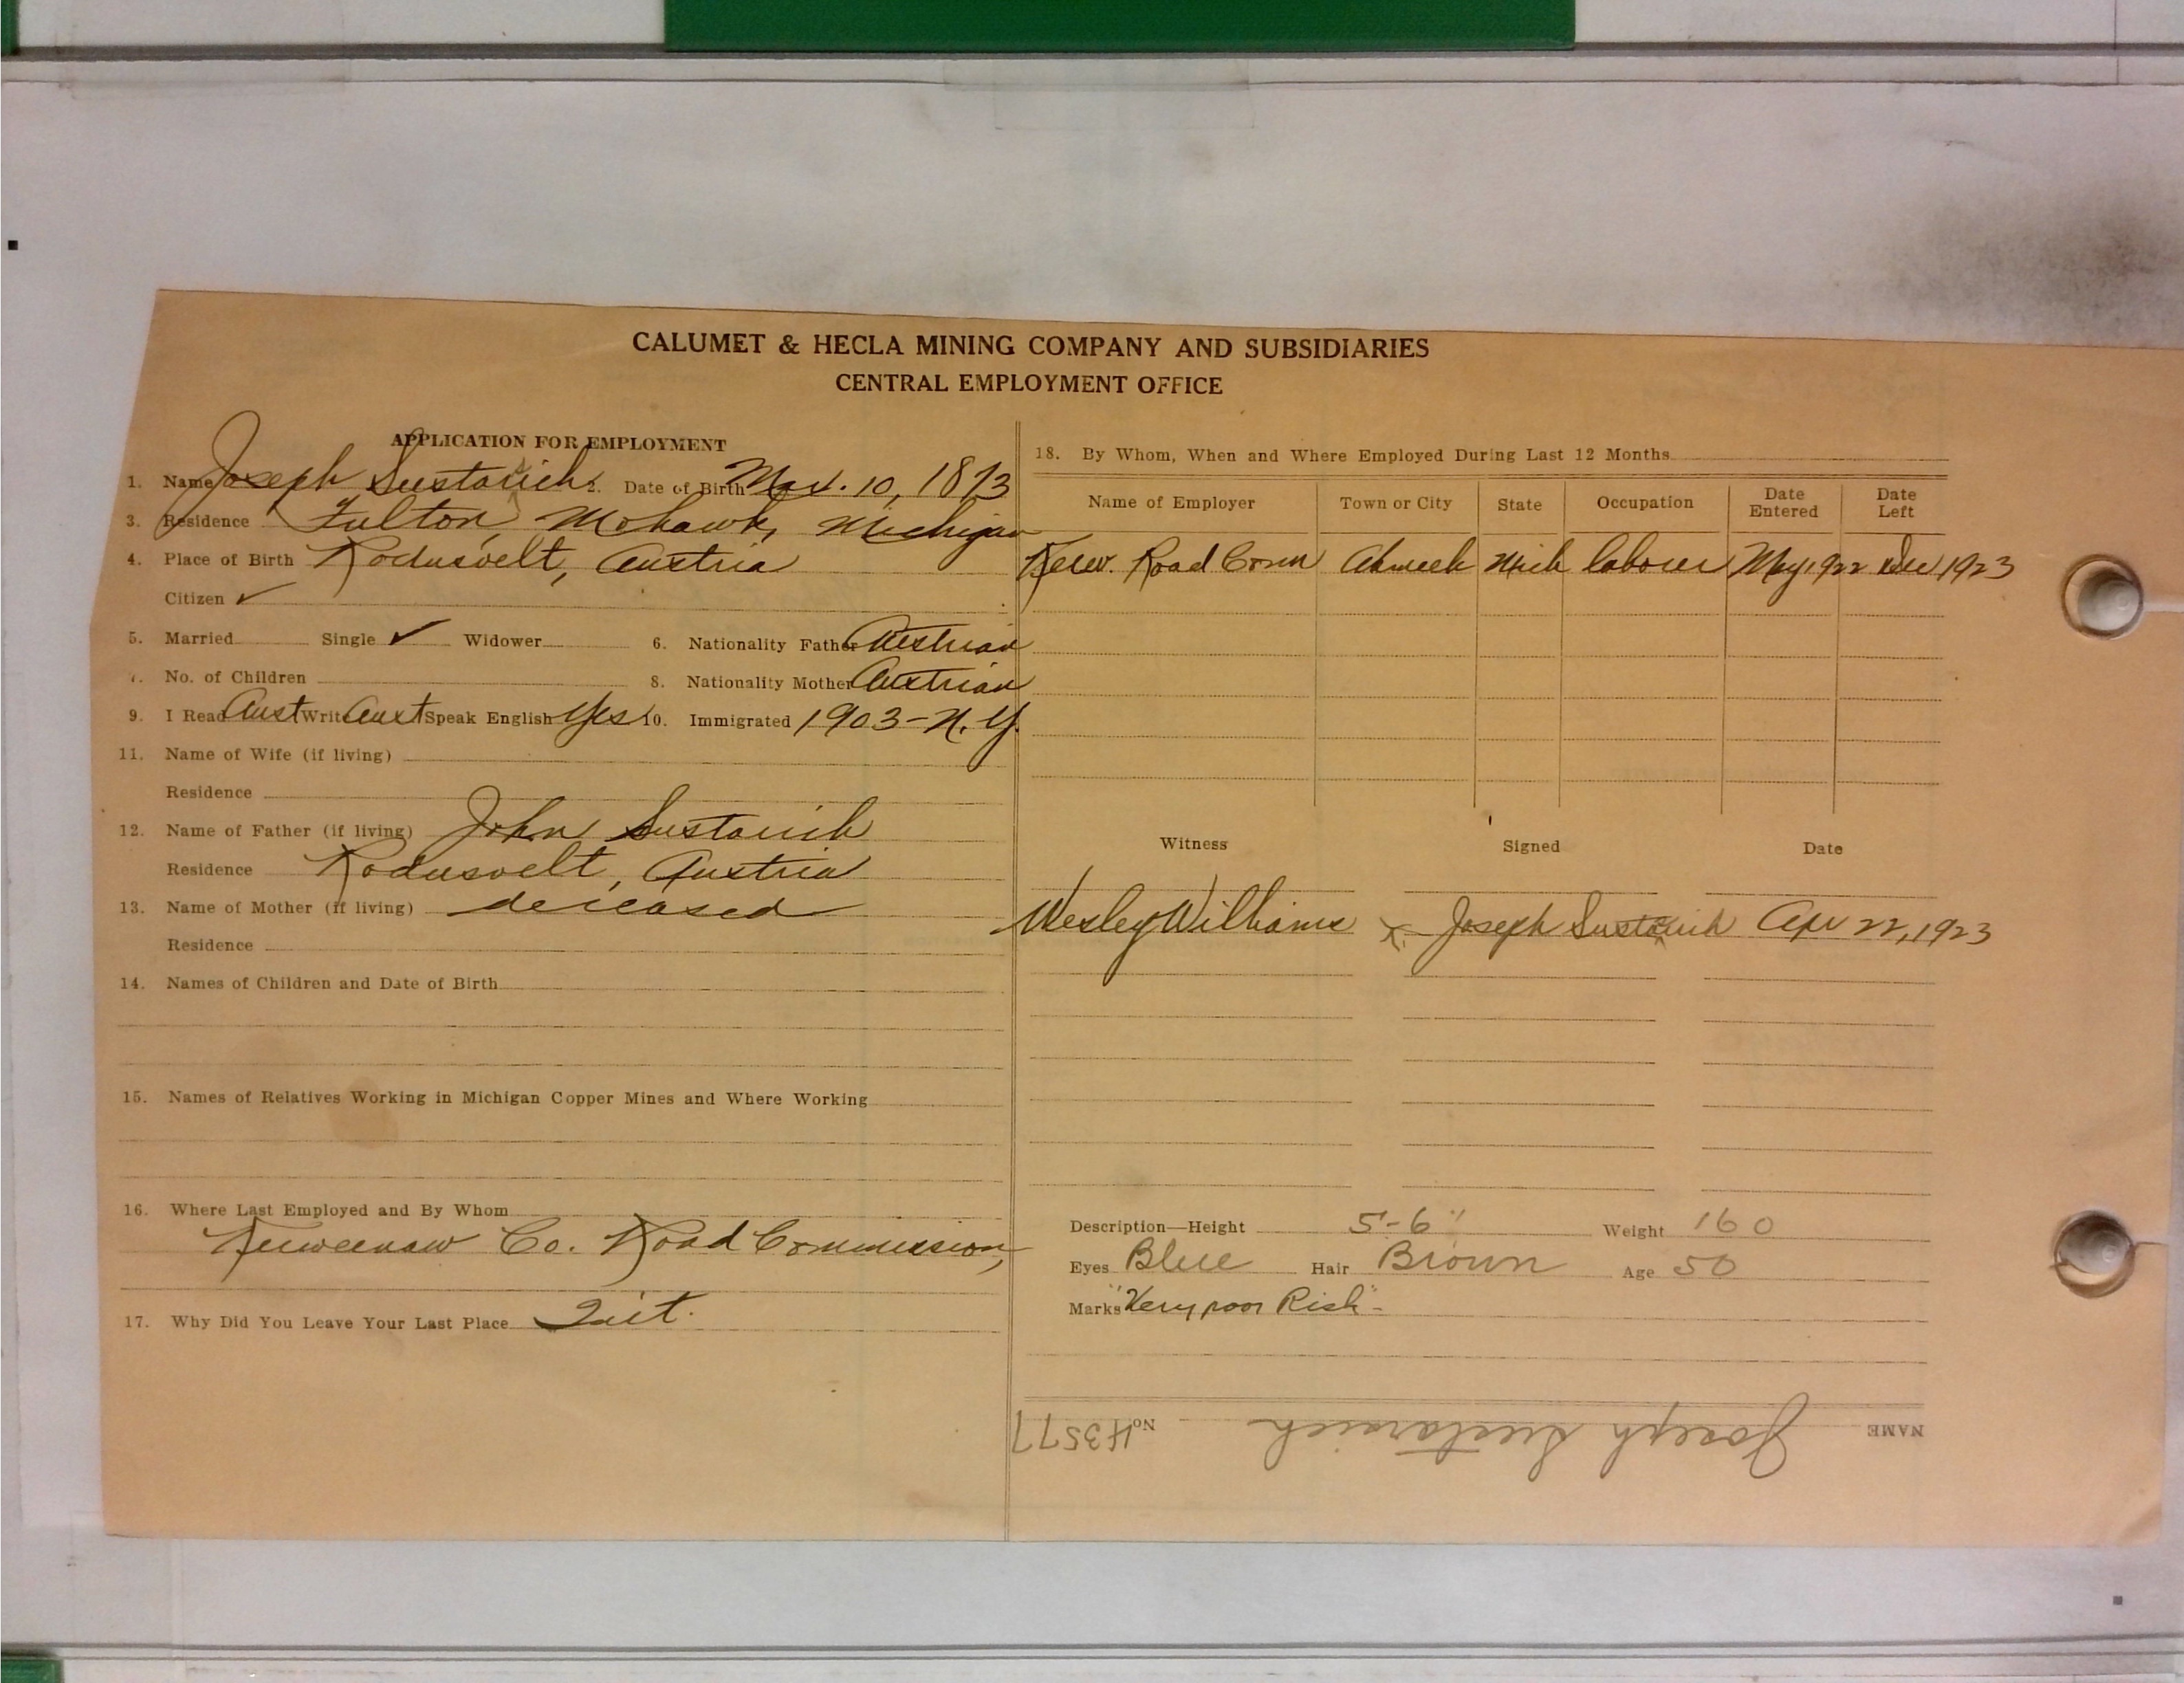 CALUMET & HECLA MINING COMPANY AND SUBSIDIARIES
CENTRAL EMPLOYMENT OFFICE
APPLICATION FOR EMPLOYMENT
1. Name Joseph Sustarich 2. Date of Birth Mar. 10, 1873
3. Residence Fulton, Mohawk, Michigan
4. Place of Birth Rodusvelt, Austria
Citizen ✓
5. Married Single ✓ Widower 6. Nationality Father Austrian
7. No. of Children 8. Nationality Mother Austrian
9. I Read Aust Write Aust Speak English Yes 10. Immigrated 1903-N.Y.
11. Name of Wife (if living)
Residence
12. Name of Father (if living) John Sustarich
Residence Rodusvelt, Austria
13. Name of Mother (if living) deceased
Residence
14. Names of Children and Date of Birth
15. Names of Relatives Working in Michigan Copper Mines and Where Working
16. Where Last Employed and By Whom
Keweenaw Co. Road Commission,
17. Why Did You Leave Your Last Place Quit.
18. By Whom, When and Where Employed During Last 12 Months
Name of Employer Town or City State Occupation Date Entered Date Left
Kew. Road Comm Ahmeek Mich laborer May 1922 1923
Witness Signed Date
Wesley Williams x Joseph Sustarich Apr 22, 1923
Description—Height 5'-6" Weight 160
Eyes Blue Hair Brown Age 50
Marks "Very poor Risk"-
NAME Joseph Sustarich No. H3577